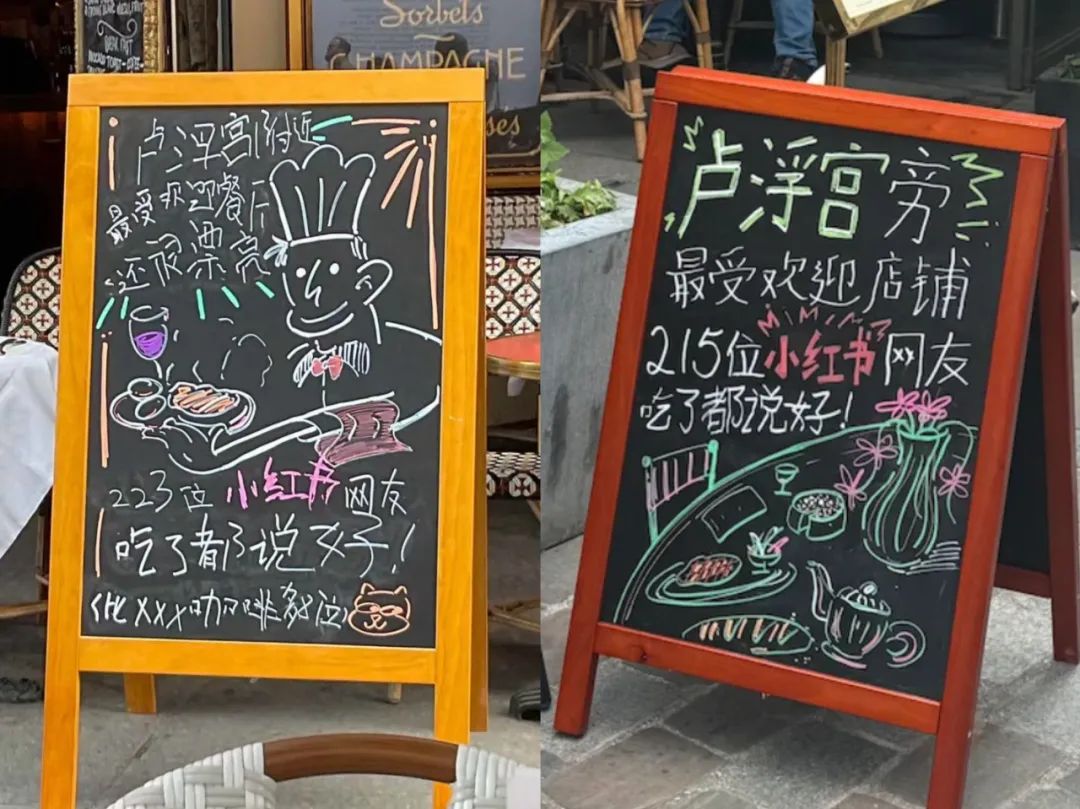 Sorbets
CHAMPAGNE
卢浮宫附近
最受欢迎餐厅
还很漂亮
223位小红书网友
吃了都说好!
(比XXX咖啡多8位)
卢浮宫旁
最受欢迎店铺
215位小红书网友
吃了都说好!